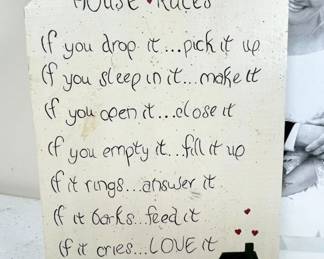 HOUSE RULES
If you drop it...pick it up
If you sleep in it...make it
If you open it...close it
If you empty it...fill it up
If it rings...answer it
If it barks...feed it
If it cries...LOVE it